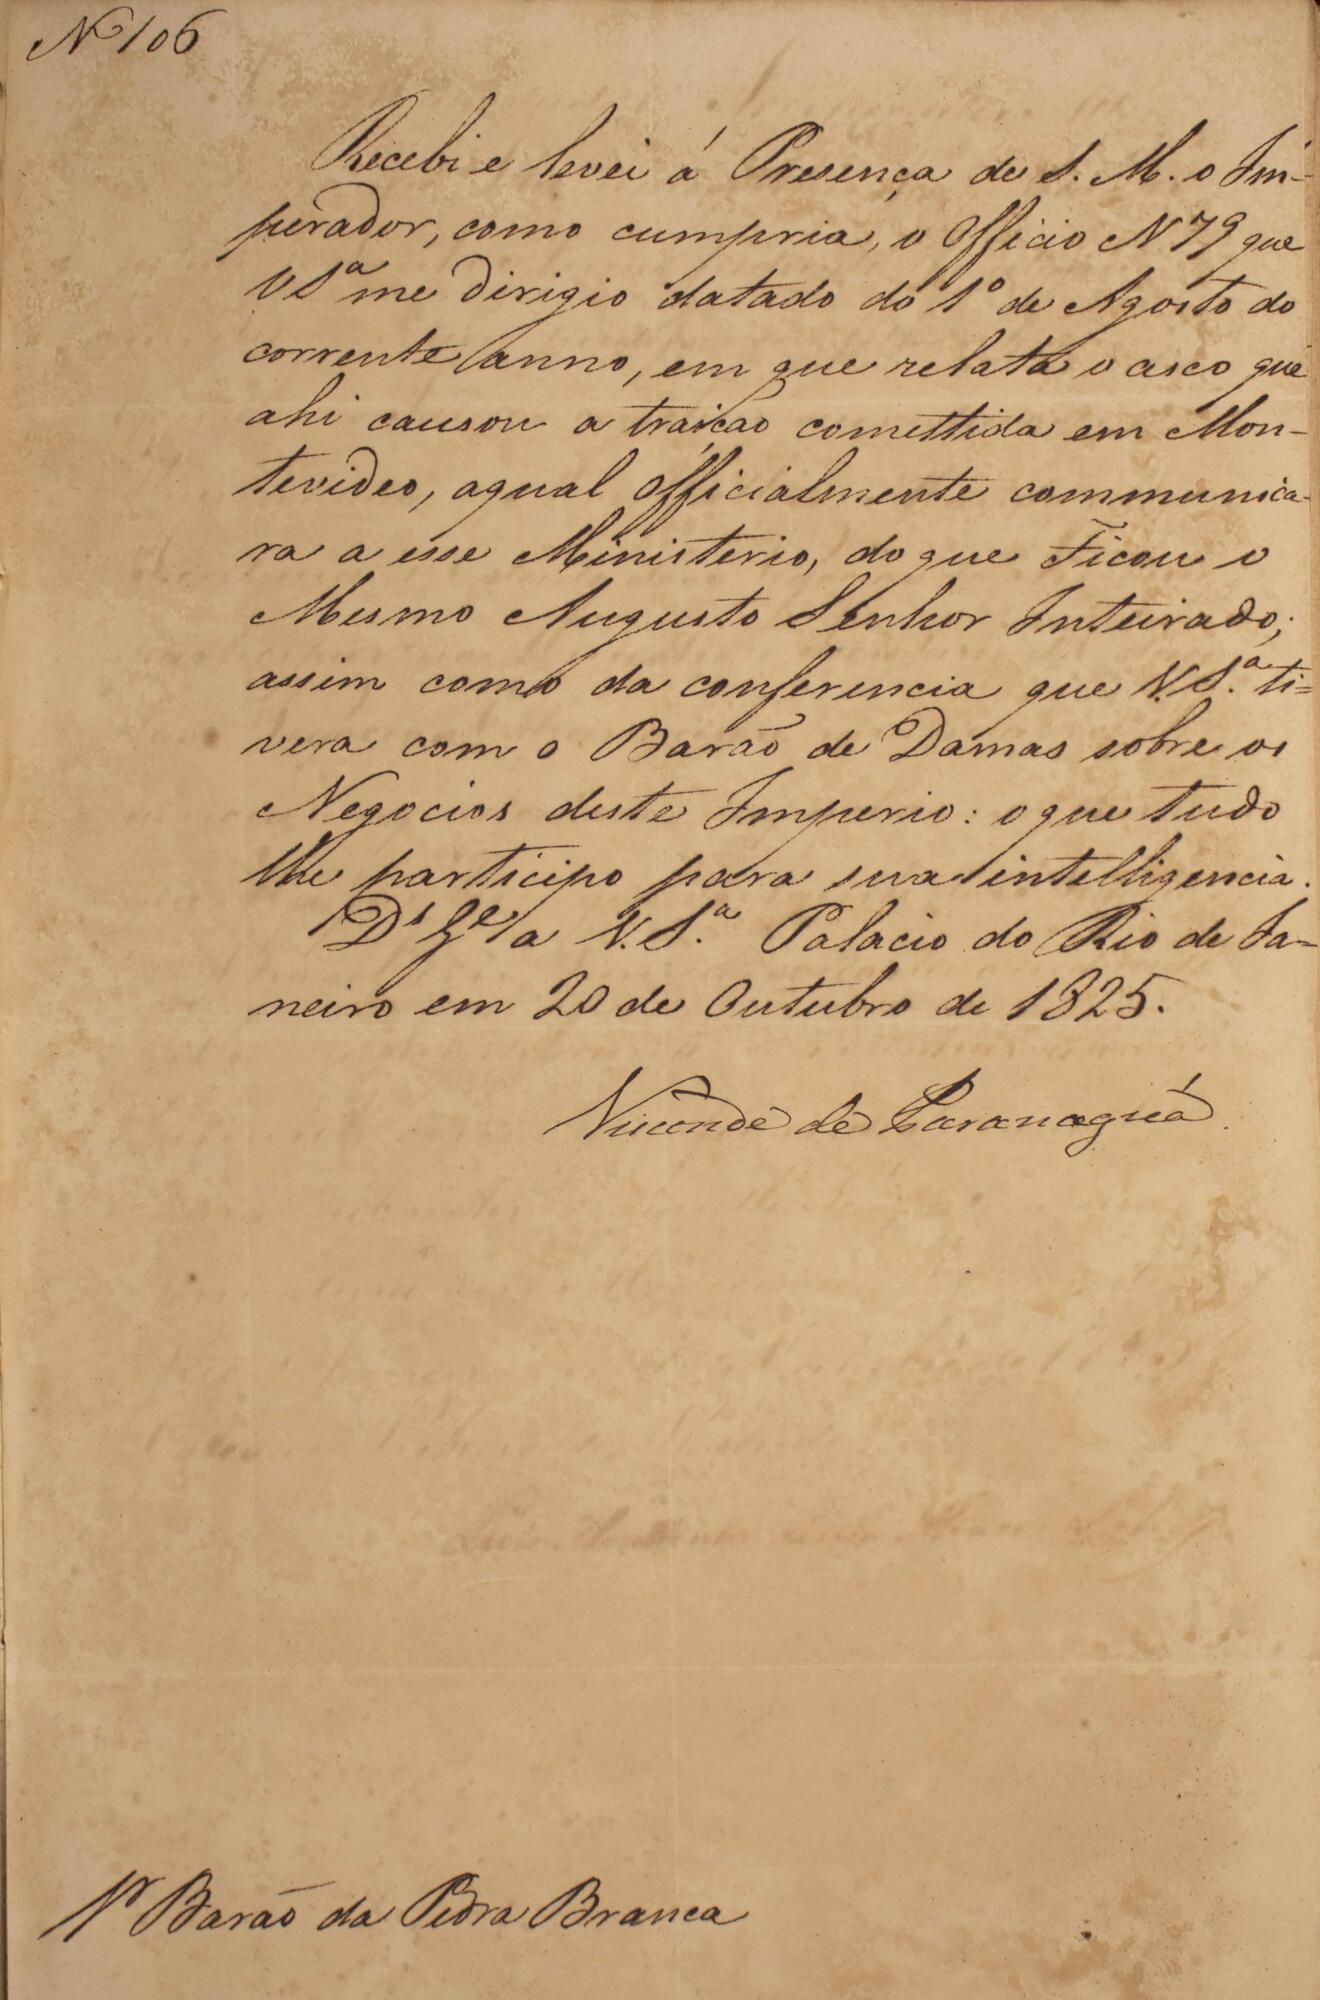 Nº 106
Recebi e levei á Presença de S. M. o Im-
perador, como cumpria, o Officio Nº 79 que
V Sª me dirigio datado do 1º de Agosto do
corrente anno, em que relata o asco que
ahi causou a traição comettida em Mon-
tevideo, aqual Officialmente communica-
ra a esse Ministerio, do que Ficou o
Mesmo Augusto Senhor Inteirado;
assim como da conferencia que V. S.ª ti=
vera com o Barão de Damas sobre os
Negocios deste Imperio: o que tudo
lhe participo para sua intelligencia.
Ds Ge a V. S.ª Palacio do Rio de Ja-
neiro em 20 de Outubro de 1825.
Visconde de Paranaguá
Sr Barão da Pedra Branca